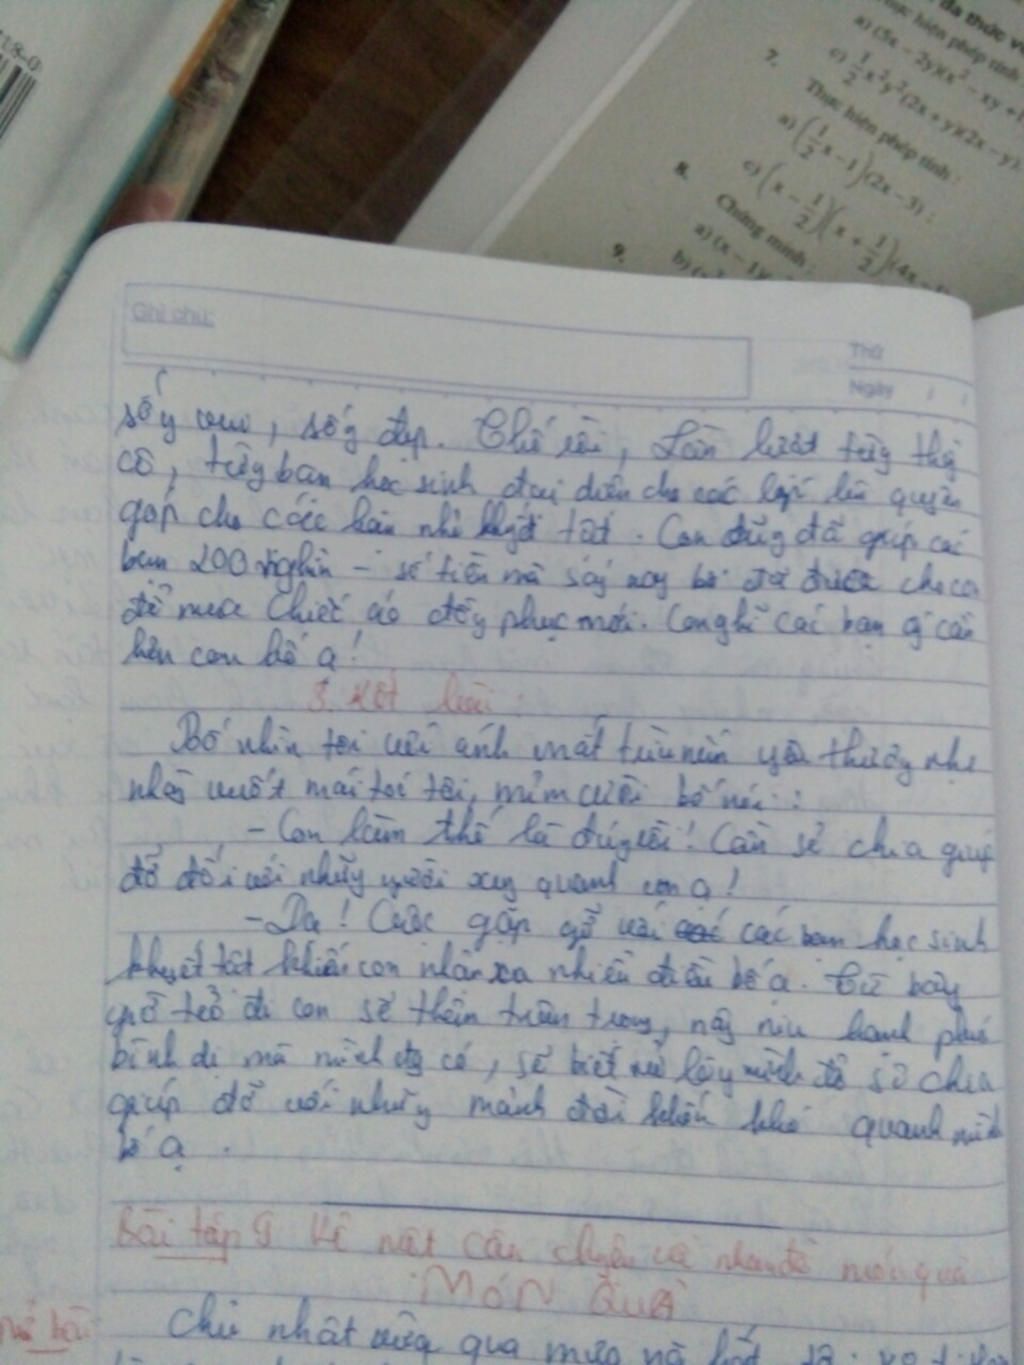 đa thức v
Thực hiện phép tính
a) (5x − 2y)(x² − xy + 1
c) 1/2 x²y²(2x + y)(2x − y)
7. Thực hiện phép tính :
a) (1/2 x − 1)(2x − 3) ;
c) (x − 1/2)(x + 1/2)(4x −
8. Chứng minh :
a) (x − 1)(
9.
b) (
Ghi chú:
Thứ
Ngày / /
sốg vui, sốg đẹp. Thế rồi, Lần lượt từg thầy
cô, từg bạn học sinh đại diện cho các lớp lên quyên
góp cho các bạn nhỏ khuyết tật. Con cũg đã giúp các
bạn 200 nghìn - số tiền mà ság nay bố đã đưa cho con
để mua chiếc áo đồg phục mới. Con nghĩ các bạn ý cần
hơn con bố ạ!
3. Kết bài:
Bố nhìn tôi với ánh mắt trìu mến yêu thươg nhẹ
nhàg vuốt mái tóc tôi, mỉm cười bố nói:
- Con làm thế là đúg rồi! Cần sẻ chia giúp
đỡ đối với nhữg người xug quanh con ạ!
- Dạ! Cuộc gặp gỡ với các bạn học sinh
khuyết tật khiến con nhận ra nhiều điều bố ạ. Từ bây
giờ trở đi con sẽ thêm trân trọng, nâg niu hạnh phúc
bình dị mà mình đag có, sẽ biết mở lòg mình để sẻ chia
giúp đỡ với nhữg mảnh đời khốn khó quanh mình
bố ạ.
Bài tập 9 Kể một câu chuyện về nhan đề món quà
MÓN QUÀ
Mở bài
Chủ nhật vừa qua